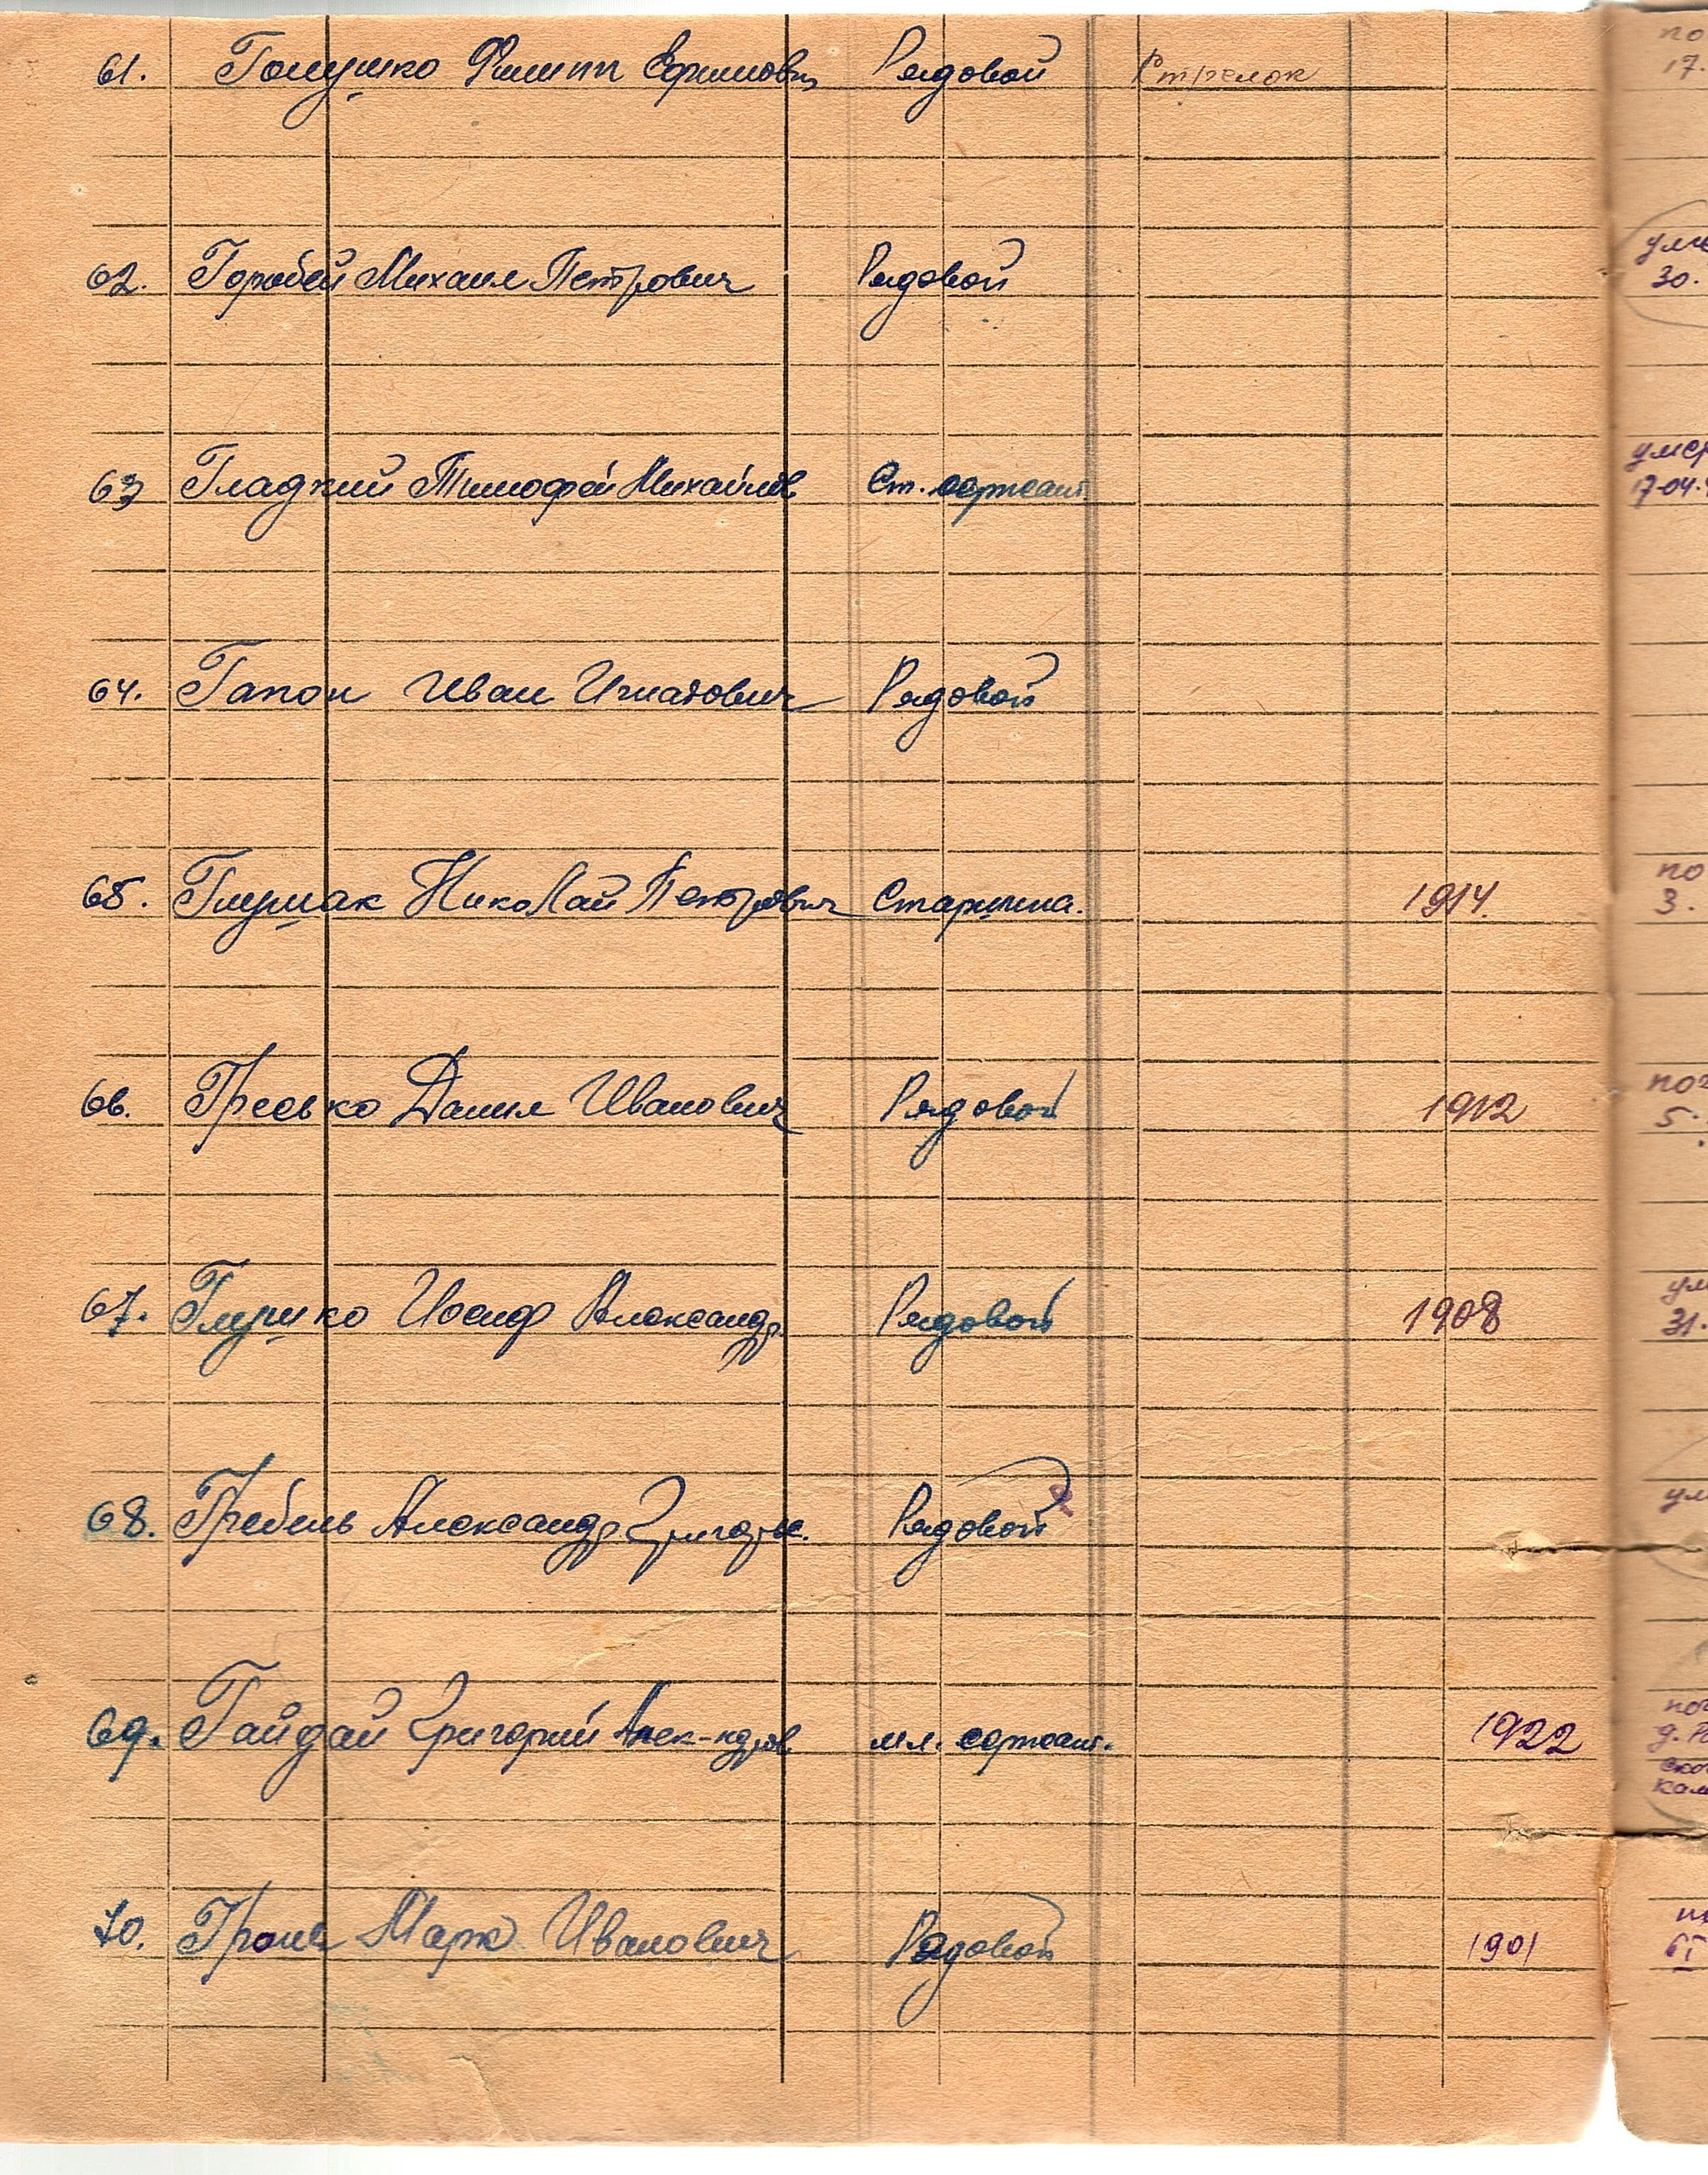 61. Голушко Филипп Ефимович Рядовой Стрелок
62. Горобей Михаил Петрович Рядовой
63 Гладкий Тимофей Михайлов Ст. сержант
64. Гапон Иван Игнатович Рядовой
65. Глушак Николай Петрович Старшина. 1914.
66. Гресько Данил Иванович Рядовой 1912
67. Глушко Иосиф Александр. Рядовой 1908
68. Гребень Александр Григорье. Рядовой
69. Гайдай Григорий Алек-ндров мл. сержант. 1922
70. Марк Иванович Рядовой 1901
по
17.
30.
умер
17-04.
по
3.
5.
ум
31.
ум